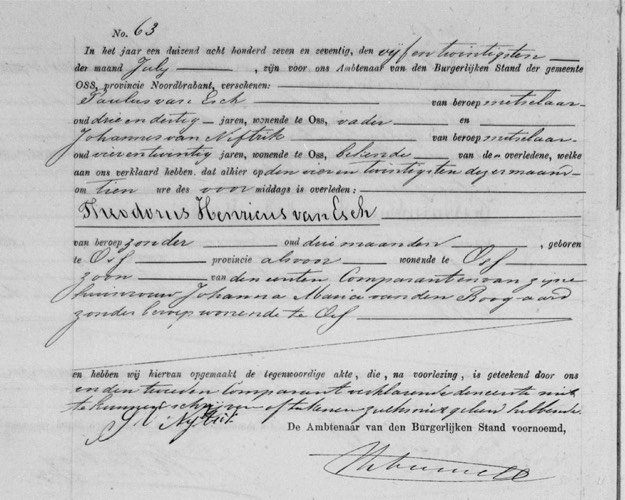 No. 63
In het jaar een duizend acht honderd zeven en zeventig, den vijf en twintigsten
der maand July, zijn voor ons Ambtenaar van den Burgerlijken Stand der gemeente
OSS, provincie Noordbrabant, verschenen:
Paulus van Esch van beroep metselaar
oud drie en dertig jaren, wonende te Oss, vader en
Johannes van Niftrik van beroep metselaar
oud vier en twintig jaren, wonende te Oss, bekende van de overledene, welke
aan ons verklaard hebben, dat alhier op den vier en twintigsten dezer maand
om tien ure des voor middags is overleden:
Theodorus Henricus van Esch
van beroep zonder oud drie maanden, geboren
te Oss provincie alsvoor wonende te Oss
zoon van den eersten Comparant en van zijne
huisvrouw Johanna Maria van den Boogaard
zonder beroep wonende te Oss
en hebben wij hiervan opgemaakt de tegenwoordige akte, die, na voorlezing, is geteekend door ons
en den tweeden Comparant verklarende de eerste niet
te kunnen schrijven of tekenen zulks niet geleerd hebbende
De Ambtenaar van den Burgerlijken Stand voornoemd,